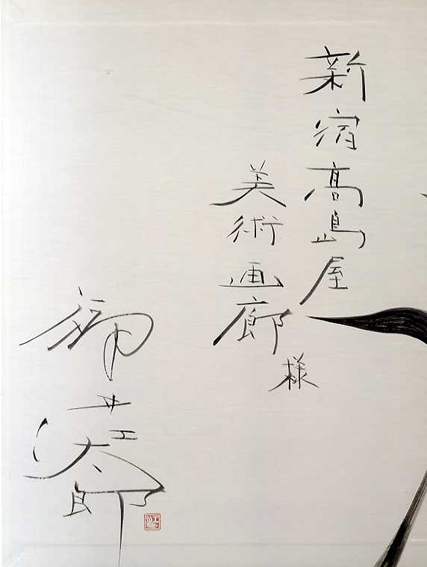 新宿髙島屋
美術画廊様
福井江太郎